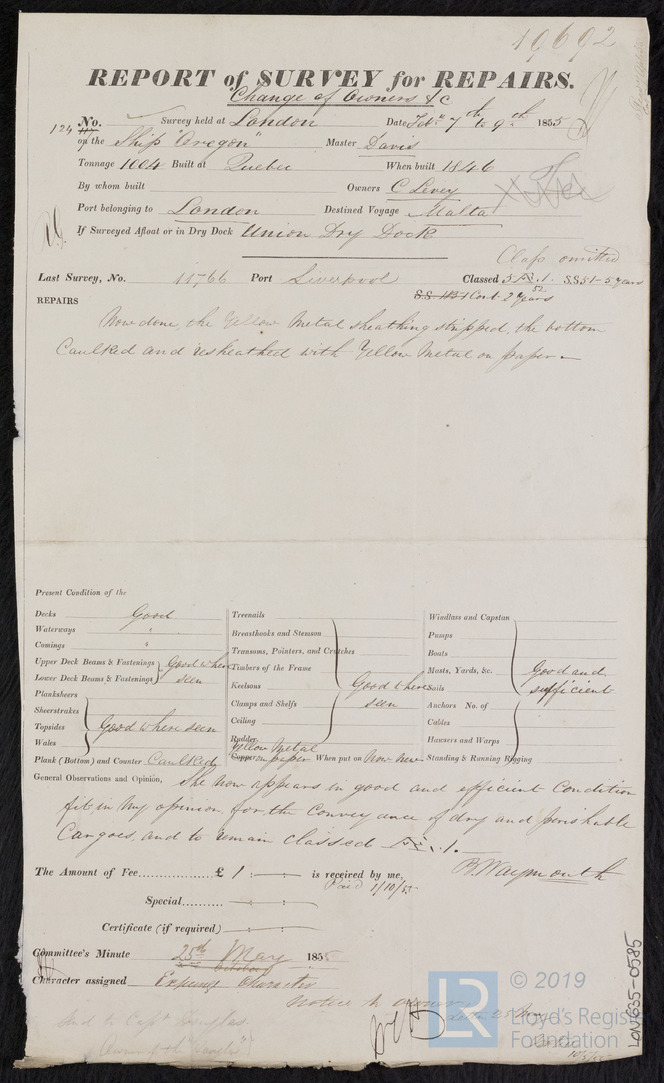 19692
REPORT of SURVEY for REPAIRS.
Change of Owners &c
124 No. Survey held at London Date Feb. 7th to 9th 1855
on the Ship "Oregon" Master Davis
Tonnage 1004 Built at Quebec When built 1846
By whom built Owners C Levey
Port belonging to London Destined Voyage Malta
If Surveyed Afloat or in Dry Dock Union Dry Dock
Class omitted
Last Survey, No. 11766 Port Liverpool Classed 5 Æ.1. S.S.51-5 years
S.S 1851 Cont. 2 years
52
REPAIRS
Now done, the Yellow Metal sheathing stripped, the bottom
Caulked and resheathed with Yellow Metal on paper
Present Condition of the
Decks Good Treenails Windlass and Capstan
Waterways " Breasthooks and Stemson Pumps
Comings " Transoms, Pointers, and Crutches Boats
Upper Deck Beams & Fastenings Good where Timbers of the Frame Masts, Yards, &c. Good and
Lower Deck Beams & Fastenings seen Keelsons Good where Sails sufficient
Planksheers Clamps and Shelfs seen Anchors No. of
Sheerstrakes Ceiling Cables
Topsides Good where seen Rudder Hawsers and Warps
Wales Yellow Metal
Plank (Bottom) and Counter Caulked Copper on paper When put on Now new Standing & Running Rigging
General Observations and Opinion, She now appears in good and efficient Condition
fit, in my opinion, for the Conveyance of dry and perishable
Cargoes, and to remain classed Æ.1.
The Amount of Fee £ 1 : - : - is received by me, B. Waymouth
Paid 1/10/55
Special - : - : -
Certificate (if required) - : - : -
Committee's Minute 25th May 1855
October
Character assigned Expunge Character
Notice to owner
Letter 25 May
Owner of the "Douglas"
LON635-0585
LR
© 2019
Lloyd's Register
Foundation